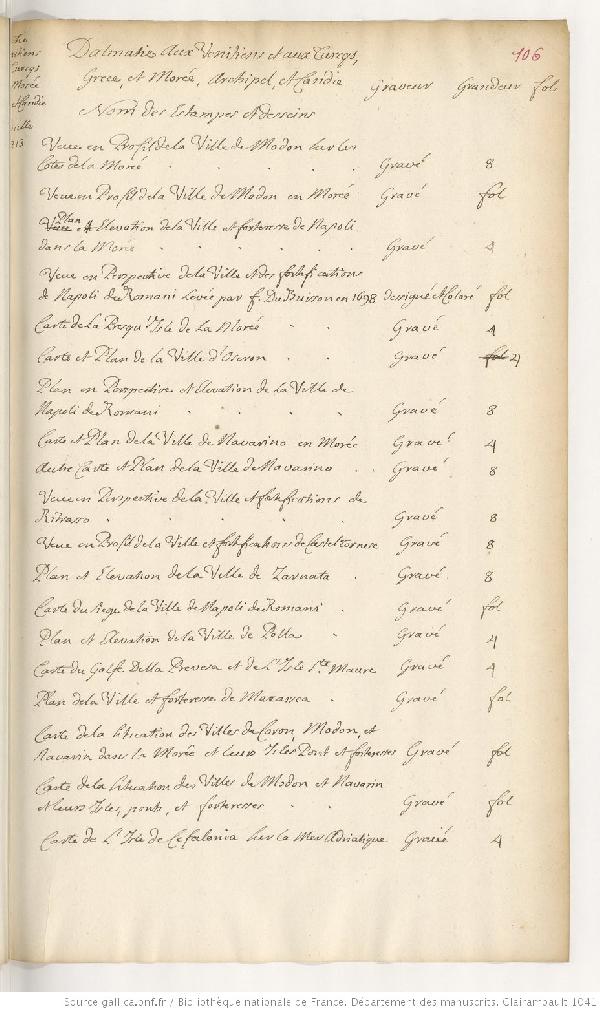 Dalmatie aux Venitiens et aux Turcqs, 106
Grece, et Morée, Archipel, et Candie Graveur Grandeur fol
Nom des Estampes et desseins
Veue en Profil de la Ville de Modon sur les
Cotes de la Morée Gravé 8
Veue en Profil de la Ville de Modon en Morée Gravé fol
Plan
Veue et Elevation de la Ville et forteresse de Napoli
dans la Morée Gravé 4
Veue en Perspective de la Ville et des fortifications
de Napoli de Romani levée par f. Du Buisson en 1698 dessigné et Coloré fol
Carte de La Presqu'Isle de La Morée Gravé 4
Carte et Plan de la Ville d'Oseron Gravé fol 4
Plan en Perspective et Elevation de La Ville de
Napoli de Romani Gravé 8
Carte et Plan de la Ville de Navarino en Morée Gravé 4
Autre Carte et Plan de la Ville de Navarino Gravé 8
Veue en Perspective de la Ville et fortifications de
Gravé 8
Veue en Profil de la Ville et fortifications de Casteltornese Gravé 8
Plan et Elevation de la Ville de Zarnata Gravé 8
Carte du siege de la Ville de Napoli de Romani Gravé fol
Plan et Elevation de la Ville de Polla Gravé 4
Carte du Golfe Della Prevesa et de L'Isle Ste. Maure Gravé 4
Plan de la Ville et forteresse de Macarsca Gravé fol
Carte de la situation des Villes de Coron, Modon, et
Navarin dans la Morée et leurs Isles Pont et forteresses Gravé fol
Carte de la situation des Villes de Modon et Navarin
et leurs Isles, ponts, et forteresses Gravé fol
Carte de L'Isle de Cefalonia sur la Mer Adriatique Gravé 4
Source gallica.bnf.fr / Bibliothèque nationale de France. Département des manuscrits. Clairambault 1041